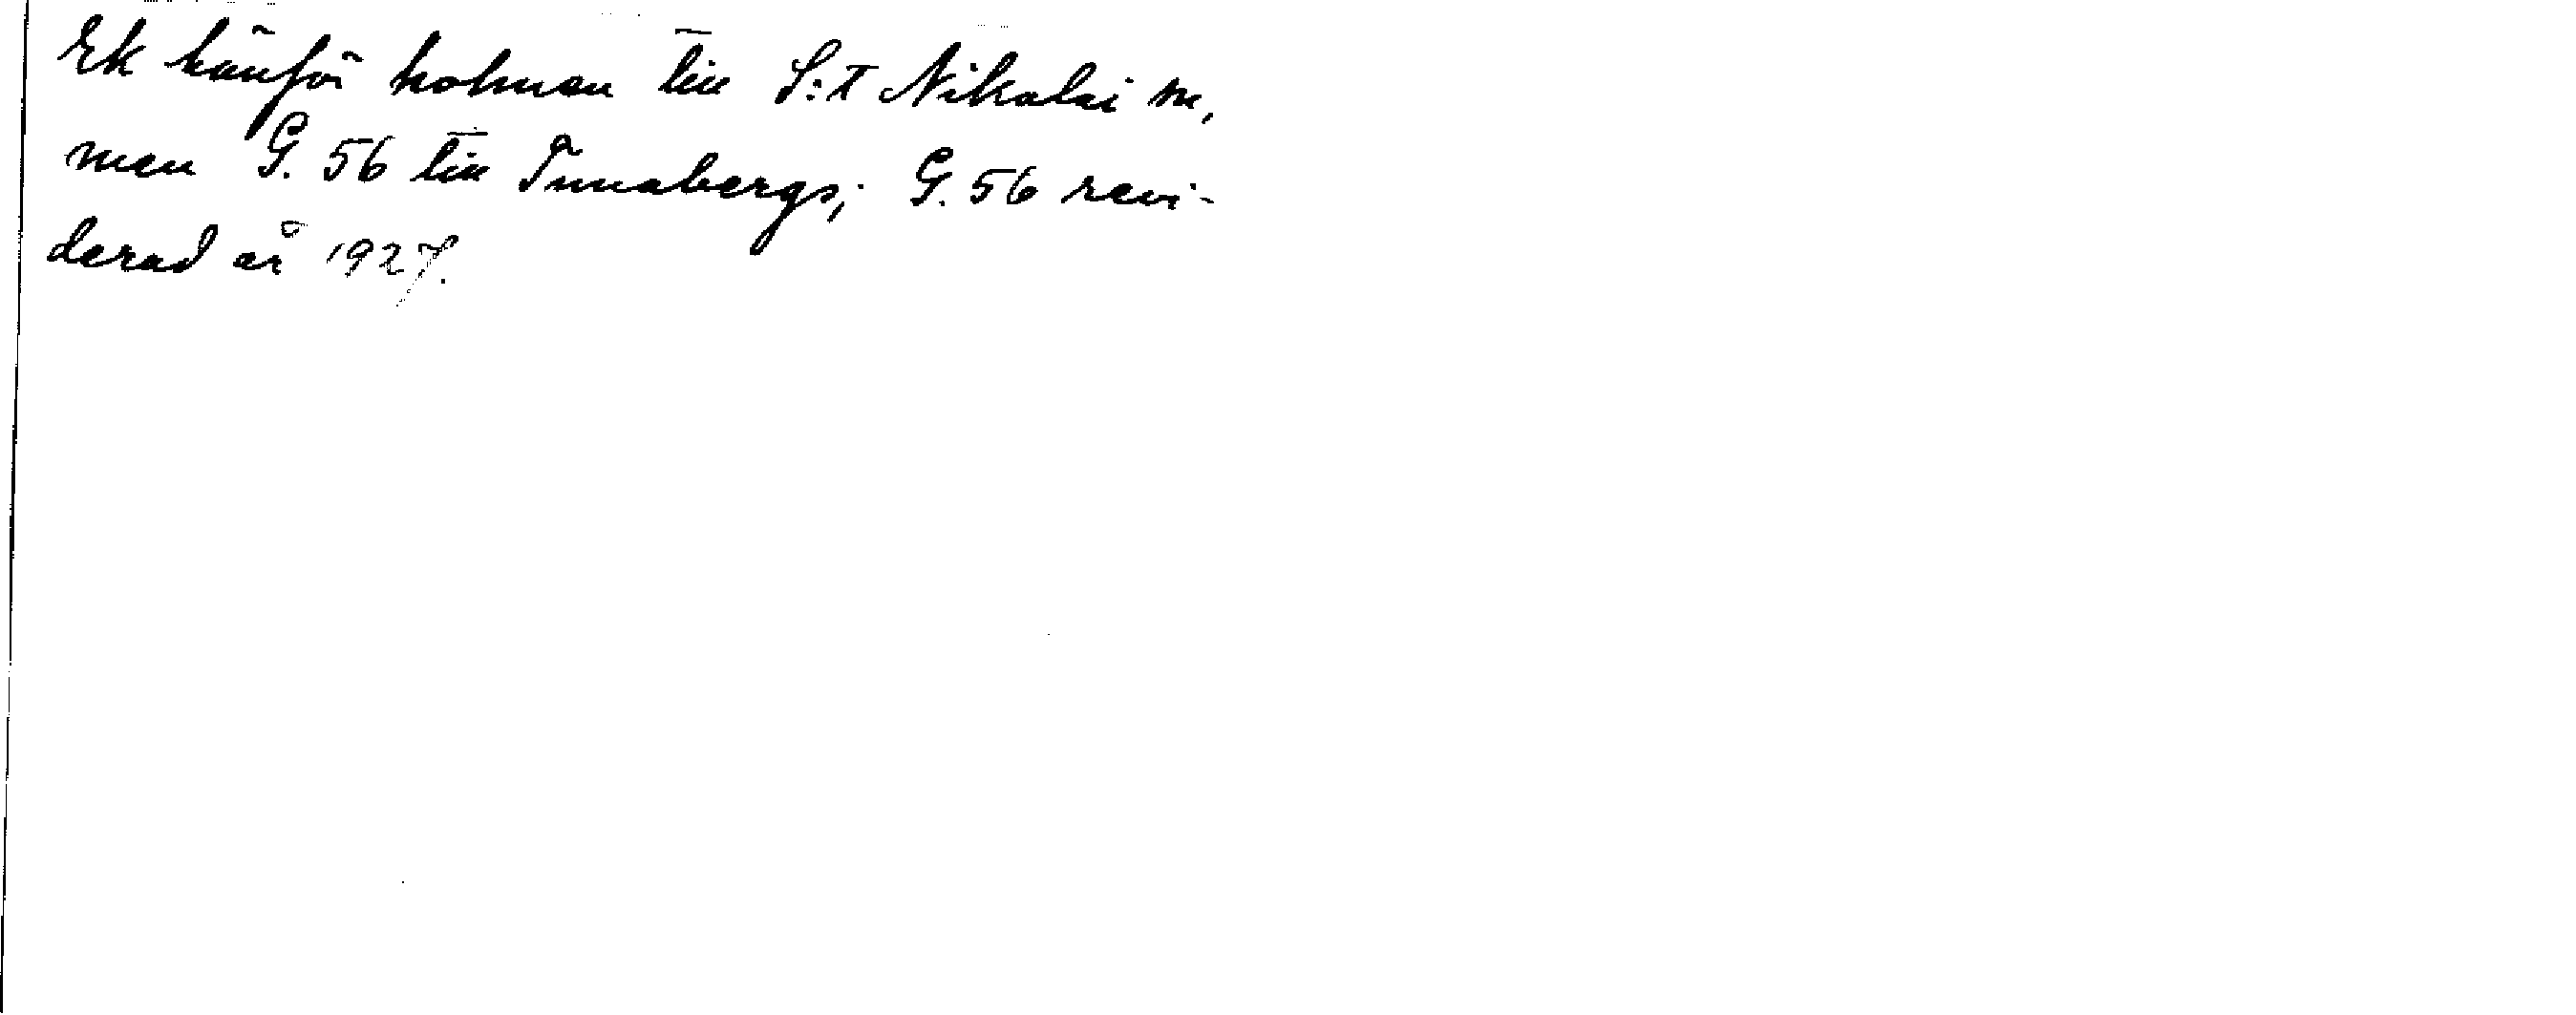 Ek hänför holmen till S:t Nikolai sn,
men G. 56 till Tunabergs; G. 56 revi-
derad år 1927.